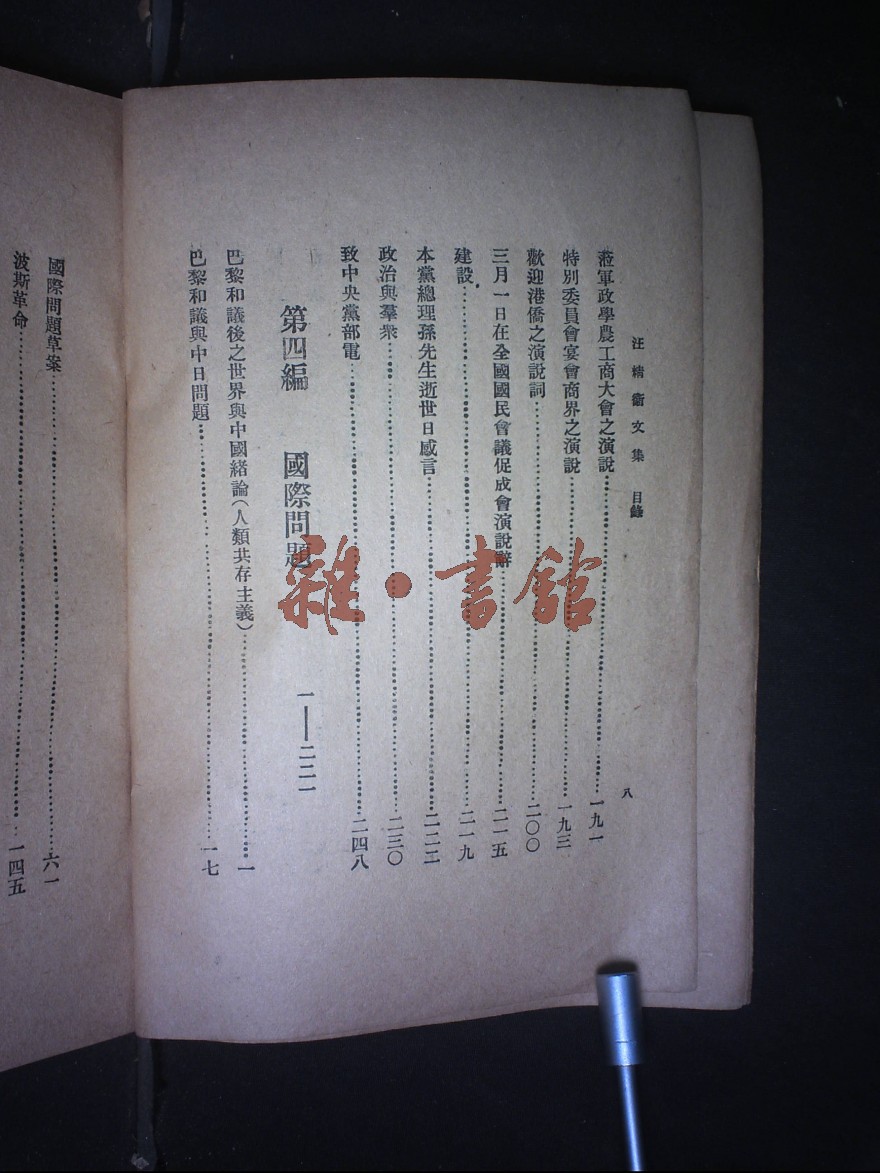 汪精衛文集 目錄 八
蒞軍政學農工商大會之演說……一九一
特別委員會宴會商界之演說……一九三
歡迎港僑之演說詞……二〇〇
三月一日在全國國民會議促成會演說辭……二一五
建設……二一九
本黨總理孫先生逝世日感言……二二二
政治與羣衆……二三〇
致中央黨部電……二四八
第四編 國際問題 一——二二一
巴黎和議後之世界與中國緒論（人類共存主義）……一
巴黎和議與中日問題……一七
國際問題草案……六一
波斯革命……一四五
雜·書館